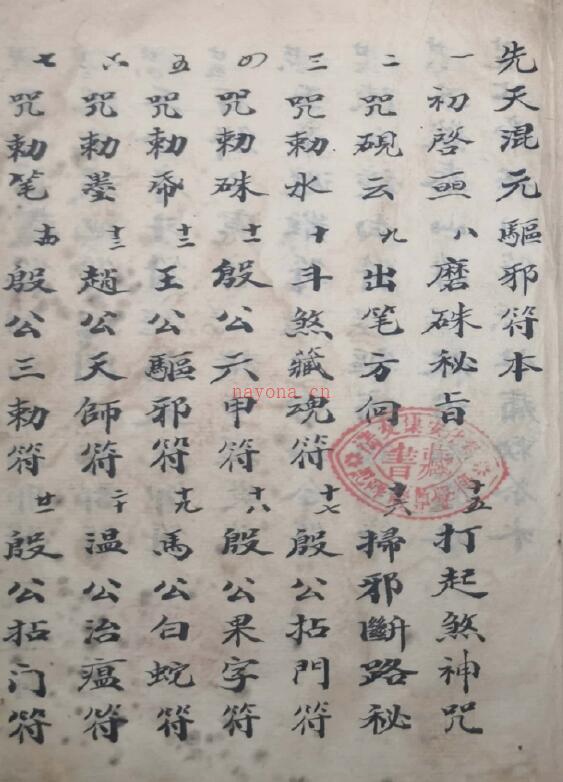 先天混元驅邪符本
一 初啓 八 磨硃秘旨 十五 打起煞神咒
二 咒硯云 九 出笔方向 十六 掃邪斷路秘
三 咒勅水 十 斗煞藏魂符 十七 殷公拈門符
四 咒勅硃 十一 殷公六甲符 十八 殷公果字符
五 咒勅帋 十二 王公驅邪符 十九 馬公白蛇符
六 咒勅墨 十三 趙公天師符 二十 温公治瘟符
七 咒勅笔 十四 殷公三勅符 廿一 殷公拈门符
書藏
nayona.cn